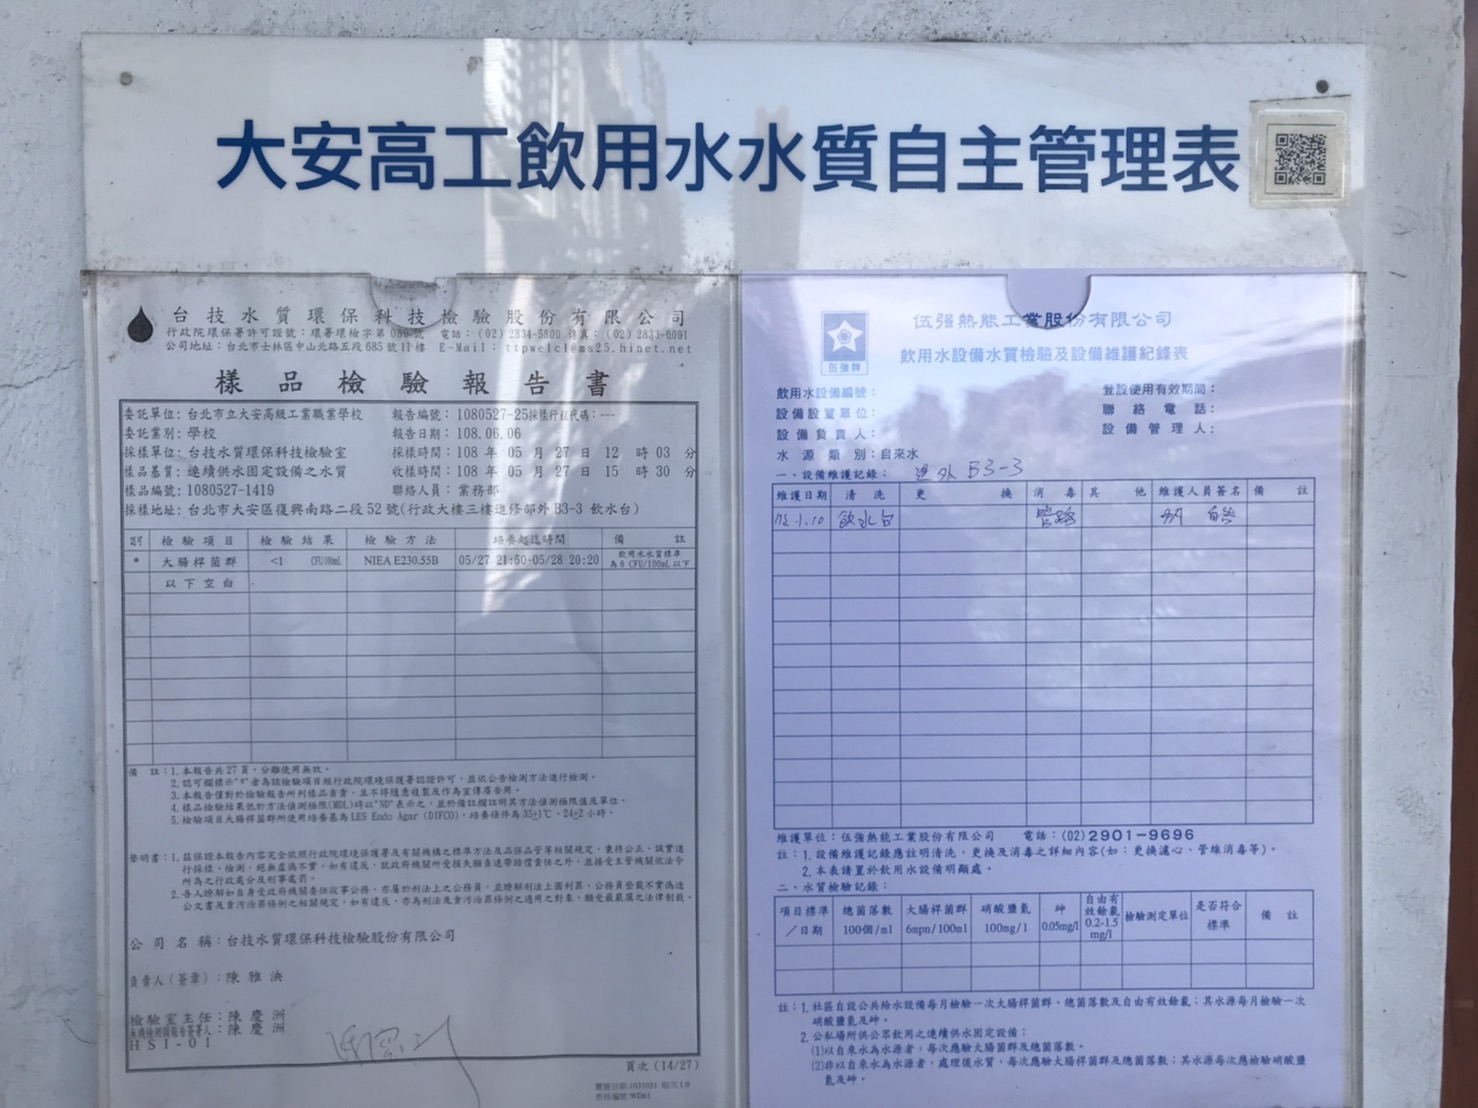 大安高工飲用水水質自主管理表
台技水質環保科技檢驗股份有限公司
行政院環保署許可證號：環署環檢字第 080 號 電話：(02) 2834-5800 傳真：(02) 2833-0091
公司地址：台北市士林區中山北路五段685號11樓 E-Mail：ttpwelcl@ms25.hinet.net
樣品檢驗報告書
委託單位：台北市立大安高級工業職業學校 報告編號：1080527-25採樣行程代碼：---
委託業別：學校 報告日期：108.06.06
採樣單位：台技水質環保科技檢驗室 採樣時間：108 年 05 月 27 日 12 時 03 分
樣品基質：連續供水固定設備之水質 收樣時間：108 年 05 月 27 日 15 時 30 分
樣品編號：1080527-1419 聯絡人員：業務部
採樣地址：台北市大安區復興南路二段 52 號(行政大樓三樓進修部外 B3-3 飲水台)
認可 檢驗項目 檢驗結果 檢驗方法 培養起迄時間 備註
* 大腸桿菌群 <1 CFU/100mL NIEA E230.55B 05/27 21:50-05/28 20:20 飲用水水質標準
為6 CFU/100mL 以下
以下空白
備 註：1.本報告共27頁，分離使用無效。
2.認可欄標示"*"者為該檢驗項目經行政院環境保護署認證許可，並依公告檢測方法進行檢測。
3.本報告僅對於檢驗報告所列樣品負責，並不得隨意複製及作為宣傳廣告用。
4.樣品檢驗結果低於方法偵測極限(MDL)時以"ND"表示之，並於備註欄註明其方法偵測極限值及單位。
5.檢驗項目大腸桿菌群所使用培養基為 LES Endo Agar (DIFCO)，培養條件為 35±1℃，24±2 小時。
聲明書：1.茲保證本報告內容完全依照行政院環境保護署及有關機構之標準方法及品保品管等相關規定，秉持公正、誠實進
行採樣、檢測。絕無虛偽不實，如有違反，就政府機關所受損失願負連帶賠償責任之外，並接受主管機關依法令
所為之行政處分及刑事處罰。
2.吾人瞭解如自身受政府機關委任從事公務，亦屬於刑法上之公務員，並瞭解刑法上圖利罪、公務員登載不實偽造
公文書及貪污治罪條例之相關規定，如有違反，亦為刑法及貪污治罪條例之適用之對象，願受最嚴厲之法律制裁。
公司名稱：台技水質環保科技檢驗股份有限公司
負責人（簽章）：陳雅泱
檢驗室主任：陳慶洲
無機檢測類報告簽署人：陳慶洲
HSI-01
頁次 (14/27)
伍強牌
伍強熱能工業股份有限公司
飲用水設備水質檢驗及設備維護紀錄表
飲用水設備編號： 登設使用有效期間：
設備設置單位： 聯絡電話：
設備負責人： 設備管理人：
水源類別：自來水
一、設備維護記錄： 進外 B3-3
維護日期 清洗 更換 消毒 其他 維護人員簽名 備註
飲水台 管路
維護單位：伍強熱能工業股份有限公司 電話：(02)2901-9696
註：1.設備維護記錄應註明清洗，更換及消毒之詳細內容(如：更換濾心、管線消毒等)。
2.本表請置於飲用水設備明顯處。
二、水質檢驗記錄：
項目標準／日期 總菌落數 100個/ml 大腸桿菌群 6mpn/100ml 硝酸鹽氮 100mg/l 砷 0.05mg/l 自由有效餘氯 0.2-1.5 mg/l 檢驗測定單位 是否符合標準 備註
註：1.社區自設公共給水設備每月檢驗一次大腸桿菌群、總菌落數及自由有效餘氯；其水源每月檢驗一次
硝酸鹽氮及砷。
2.公私場所供公眾飲用之連續供水固定設備：
(1)以自來水為水源者，每次應驗大腸菌群及總菌落數。
(2)非以自來水為水源者，處理後水質，每次應驗大腸桿菌群及總菌落數；其水源每次應檢驗硝酸鹽
氮及砷。